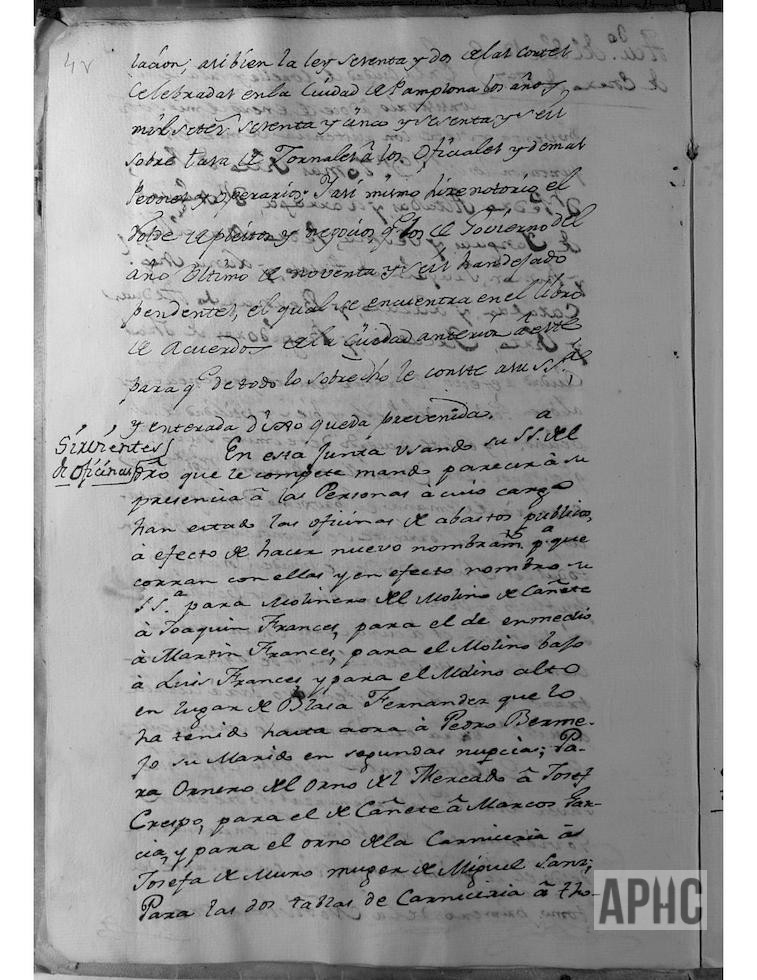 4v
lacion; asi bien la ley setenta y dos de las Cortes
Celebradas en la Ciudad de Pamplona los años
mil setes setenta y cinco y setenta y seis
sobre tasa de Jornales â los Oficiales y demas
Peones y operarios: Yasi mismo hize notorio el
rolde de pleitos y negocios qe los de Govierno del
año ultimo de noventa y seis han dejado
pendentes, el qual se encuentra en el libro
de Acuerdos de la Ciudad anterior â este
para qe de todo lo sobredcho le conste a su SSª
y enterada dijo queda prevenida.
Sirvientes
de oficinas
En esta Junta usando su SSª del
dro que le compete mando parecer â su
presencia â las Personas â cuio cargo
han estado las oficinas de abastos publicos,
â efecto de hacer nuevo nombramto pª que
corran con ellas y en efecto nombro su
SS.ª para Molinero del Molino de Cañete
â Joaquin Frances, para el de enmedio
â Martin Frances, para el Molino bajo
â Luis Frances y para el Molino alto
en lugar de Blasa Fernandez que lo
ha tenido hasta aora â Pedro Berme-
jo su Marido en segundas nupcias; Pa-
ra Ornero del Orno del Mercado â Josef
Crespo, para el de Cañete â Marcos Gar-
cia, y para el orno de la Carniceria â
Josefa de Muro muger de Miguel Sanz;
Para las dos tablas de Carniceria â Tho-
APHC